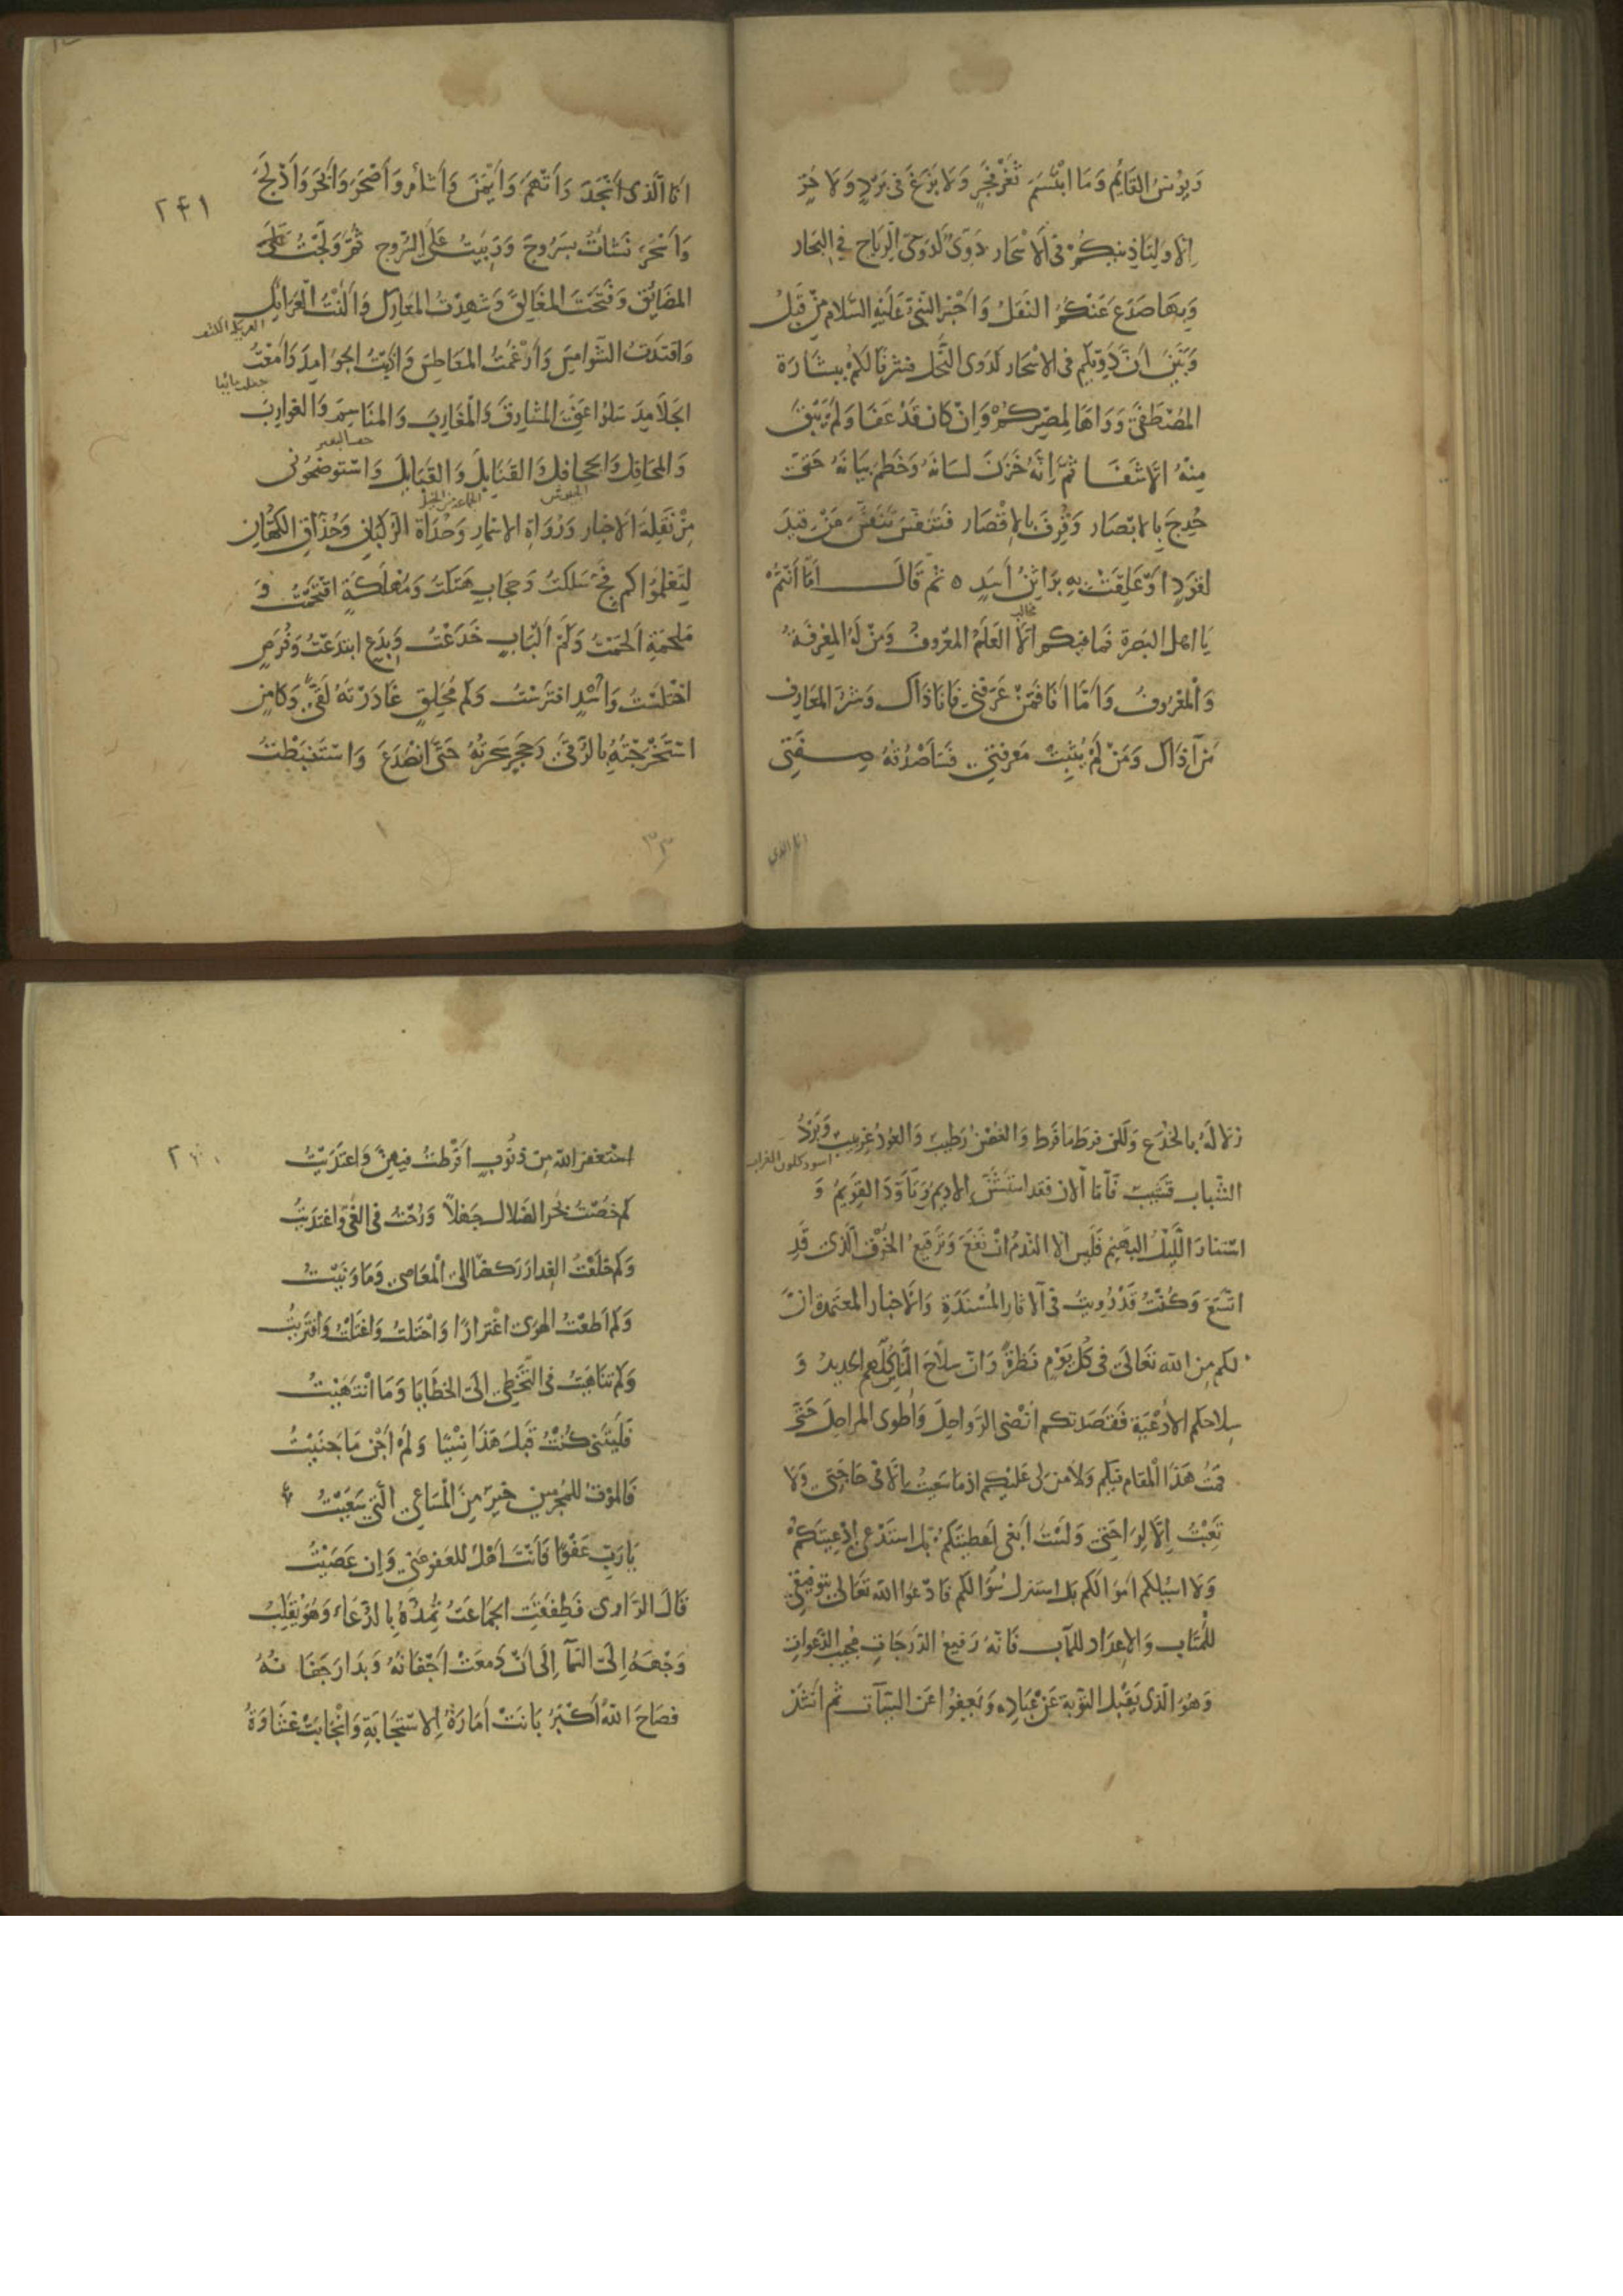 وَيُؤنسُ القَايمُ وَمَا ابْتَسَمَ ثَغْرُ فَجْرٍ وَلَا بَزَغَ فى بَرْدٍ وَلَا حَرٍّ
اِلَّا وَلِتَاذِينِكُمْ فى الْاَسْحَار دَوِىٌّ كَدَوِىّ الرِّيَاح فِي البِحَار
وَبِهَا صَدَعَ عَنْكُمُ النَقلُ وَاَخْبَرَ النَّبِىّ عَلَيْهِ السَّلام مِنْ قَبلُ
وَبَيَّنَ اَنَّ دَوِيّكم فى الاسْحَار كَدَوى النَّحْل
المُصْطَفَى وَوَاهًا لِمِصْرِكُمْ وَاِنْ كَان قَدْ عَفَا وَلَمْ يَبْقَ
مِنْهُ اِلَّا شَفَا ثُمَّ اِنَّهُ خَزَنَ لسَانَهُ وَخَطَمَ بيَانَهُ حَتّى
حُدِجَ بِالاَبْصَار وَقُرِفَ بالاِقْصَار فَتَنَفَّسَ تَنَفُّسَ مَنْ قِيدَ
لقَوَدٍ اَوْ عَلِقَتْ بِهِ بَرَاثِنُ اَسَدٍ ثم قَالَ اَمَّا اَنْتُمْ
مخالب
يَا اهل البَصْرَة فَمَا فيكم اِلَّا العَلَمُ المعْروفُ وَمَنْ لَهُ المَعْرِفَةُ
وَالمَعْرُوفُ وَاَمَّا اَنَا فَمَنْ عَرَفَنِى فَاَنَا ذَاكَ وَشَرُّ المَعَارف
مَنْ آذَاكَ وَمَنْ لَمْ يُثْبِتْ مَعْرِفَتِى فَسَاَصْدُقُهُ صِفَتِى
انا الذي
اَنَا الَّذى اَنْجَدَ وَاَتْهَمَ وَاَيْمَنَ وَاَشْاَمَ وَاَصْحَرَ وَاَبْحَرَ وَاَدْلَجَ
٢٤١
وَاَسْحَرَ نَشَاْتُ بِسَرُوجَ وَرَبِيتُ عَلَى السُّرُوج ثُمَّ وَلَجْتُ
المَضَايقَ وَفَتَحْتُ المَغَالِقَ وَشَهِدْتُ المَعَارِكَ وَاَلَنْتُ العَرَايِكَ
وَاقْتَدْتُ الشَّوَامِسَ وَاَرْغَمْتُ المَعَاطِسَ وَاَذَبْتُ الجَوَامِدَ وَاَمَعْتُ
الجَلَامِيدَ سَلوُا عَنِّى المَشَارِقَ وَالمَغَارِبَ وَالمَنَاسِمَ وَالغَوَارِبَ
وَالمَحَافِلَ وَالجَحَافِلَ وَالقَنَابِلَ وَالقَبَايلَ وَاسْتَوضِحُونِى
الجيوش
مِنْ نَقَلَة الاَخبار وَرُوَاة الاسمار وَحُدَاة الرُّكْبَان وَحُذَّاقِ الكُهَّان
لِتَعْلَمُوا كم فَجٍّ سَلكتُ وَحِجَابٍ هَتَكتُ وَمَهْلَكَةٍ اقْتَحَمْتُ وَ
مَلْحَمَةٍ اَلْحَمْتُ وَكَمْ اَلْبَابٍ خَدَعْتُ وَبِدَعٍ ابتَدَعْتُ وَفُرَصٍ
اخْتَلَسْتُ وَاُسْدٍ افتَرَسْتُ وَكَم مُحَلِّقٍ غَادَرْتُهُ لَقًى وَكَامِنٍ
اسْتَخْرَجْتُهُ بِالرُّقَى وَحَجَرٍ سَحَرْتُهُ حَتَّى انْصَدَعَ وَاسْتَنْبَطْتُ
زُلَالَهُ بالخُدَع وَلكن فرَطَ مَا فَرَط وَالغصْنُ رَطِيبٌ وَالفَوْدُ غِرْبِيبٌ وَبُرْدُ
اسود كلون الغراب
الشَّبَاب قَشِيبٌ فَاَمَّا الآن فَقد اسْتَشَنَّ الادِيمُ وَتَاَوَّدَ القَوِيمُ وَ
اسْتَنارَ اللَّيْلُ البَهِيمُ فَليْسَ اِلَّا النَّدَمُ اِنْ نَفَعَ وَتَرقِيعُ الخَرْقِ الَّذِى قَدِ
اتَّسَعَ وَكُنْتُ قَدْ رُوِيتُ فى الآثارِ المُسْنَدَةِ وَالاَخبار المعتمدة اَنَّ
لكم مِنَ الله تَعَالى فى كُلّ يَوْم نَظْرَةً وَاَنَّ سِلَاحَ النَّاس كُلّهم الحديدُ وَ
سِلاحكم الاَدْعِيَة فَقَصَدتكم اُنْضى الرَّوَاحِلَ وَاَطوى المَرَاحِلَ حَتَّى
قمْتُ هَذَا المَقَام فيكم وَلَا مَنَّ لى عَليْكم اذ مَا سَعيتُ اِلَّا فى حَاجَتِى وَلَا
تَعِبْتُ اِلَّا لِرَاحَتِى وَلَسْتُ اَبغى اَعطيتَكم بل اسْتَدْعى اَدْعِيَتَكُمْ
وَلَا اسْئلكم اَموالَكم بل استَنزل سُؤَالكم فَادْعُوا اللهَ تَعَالى بتَوفيقى
للمَتَاب وَالاِعدَاد للمآب فَاِنَّهُ رَفيعُ الدَّرَجَاتِ مُجيبُ الدَّعَوَات
وَهُوَ الَّذى يَقْبَلُ التوْبَةَ عَنْ عِبَادِه وَيَعفُوا عَن السَّيئآت ثم انْشَدَ
استَغفرُ الله مِن ذنُوبٍ اَفْرطتُ فيهِنَّ وَاعتَدَيْتُ
كم خُضْتُ بَحْرَ الضَّلال جَهْلاً وَرُحْتُ فى الغَىّ وَاغْتَدَيْتُ
وَكم خَلَعْتُ العِذَارَ رَكضًا الى المَعَاصى وَمَا وَنَيْتُ
وَكم اَطعْتُ الهَوَى اغْترارًا وَاخْتَلتُ وَاغتَلتُ وَافْتَرَيْتُ
وَكم تَنَاهَيْتُ فى التَّخَطِّى اِلَى الخَطَايَا وَمَا انْتَهَيْتُ
فَلَيْتَنِى كُنْتُ قَبْلَ هَذَا نَسْيًا وَلَمْ اَجْنِ مَا جَنَيْتُ
فَالموْتُ للمُجْرمين خَيْرٌ مِنَ المَسَاعِى الَّتى سَعَيْتُ
يَا رَبّ عَفْوًا فَاَنْتَ اَهْلٌ للعَفو عَنّى وَاِن عَصَيْتُ
قَالَ الرَّاوى فَطفِقَتِ الجَمَاعَتُ تُمِدُّهُ بِالدُّعَاءِ وَهُوَ يُقَلِّبُ
وَجْهَهُ اِلَى السَّمآ اِلَى اَنْ دَمعَتْ اَجْفَانُهُ وَبَدَا رَجَفَانُهُ
فَصَاحَ اللهُ اَكْبَرُ بَانَتْ اَمَارَةُ الِاسْتِجَابَةِ وَانْجَابَتْ غِشَاوَةُ